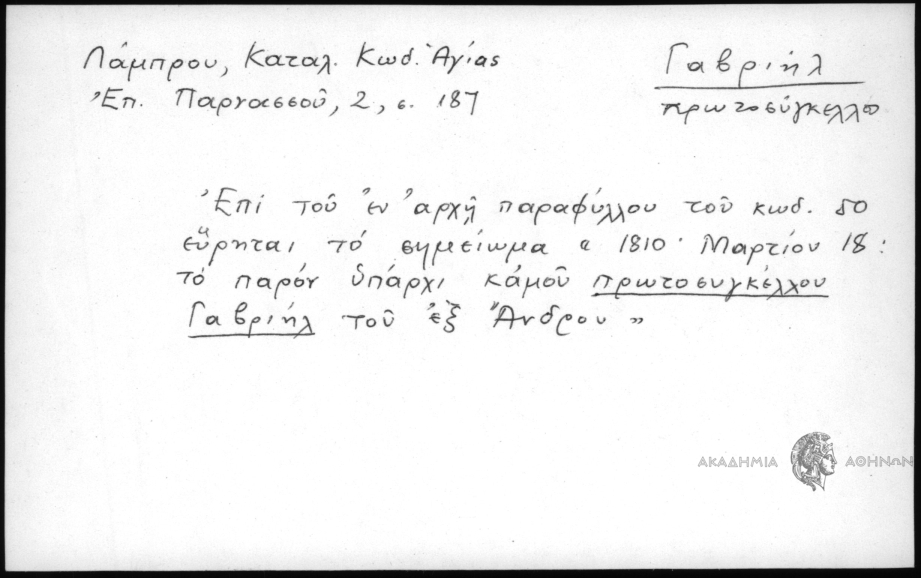 Λάμπρου, Καταλ. Κωδ. Ἁγίας
Ἐπ. Παρνασσοῦ, 2, σ. 187
Γαβριήλ
πρωτοσύγκελλο
Ἐπί τοῦ ἐν ἀρχῇ παραφύλλου τοῦ κωδ. 50
εὕρηται τό σημείωμα « 1810· Μαρτίου 18:
τό παρόν ὑπάρχι κἀμοῦ πρωτοσυγκέλλου
Γαβριήλ τοῦ ἐξ Ἄνδρου »
ΑΚΑΔΗΜΙΑ ΑΘΗΝΩΝ